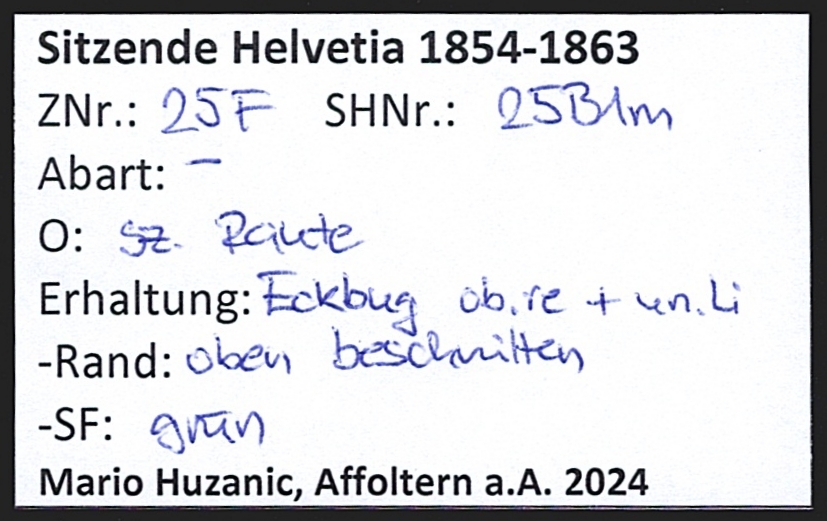 Sitzende Helvetia 1854-1863
ZNr.: 25F SHNr.: 25B1m
Abart: –
O: sz. Raute
Erhaltung: Eckbug ob.re + un.li
-Rand: oben beschnitten
-SF: grün
Mario Huzanic, Affoltern a.A. 2024